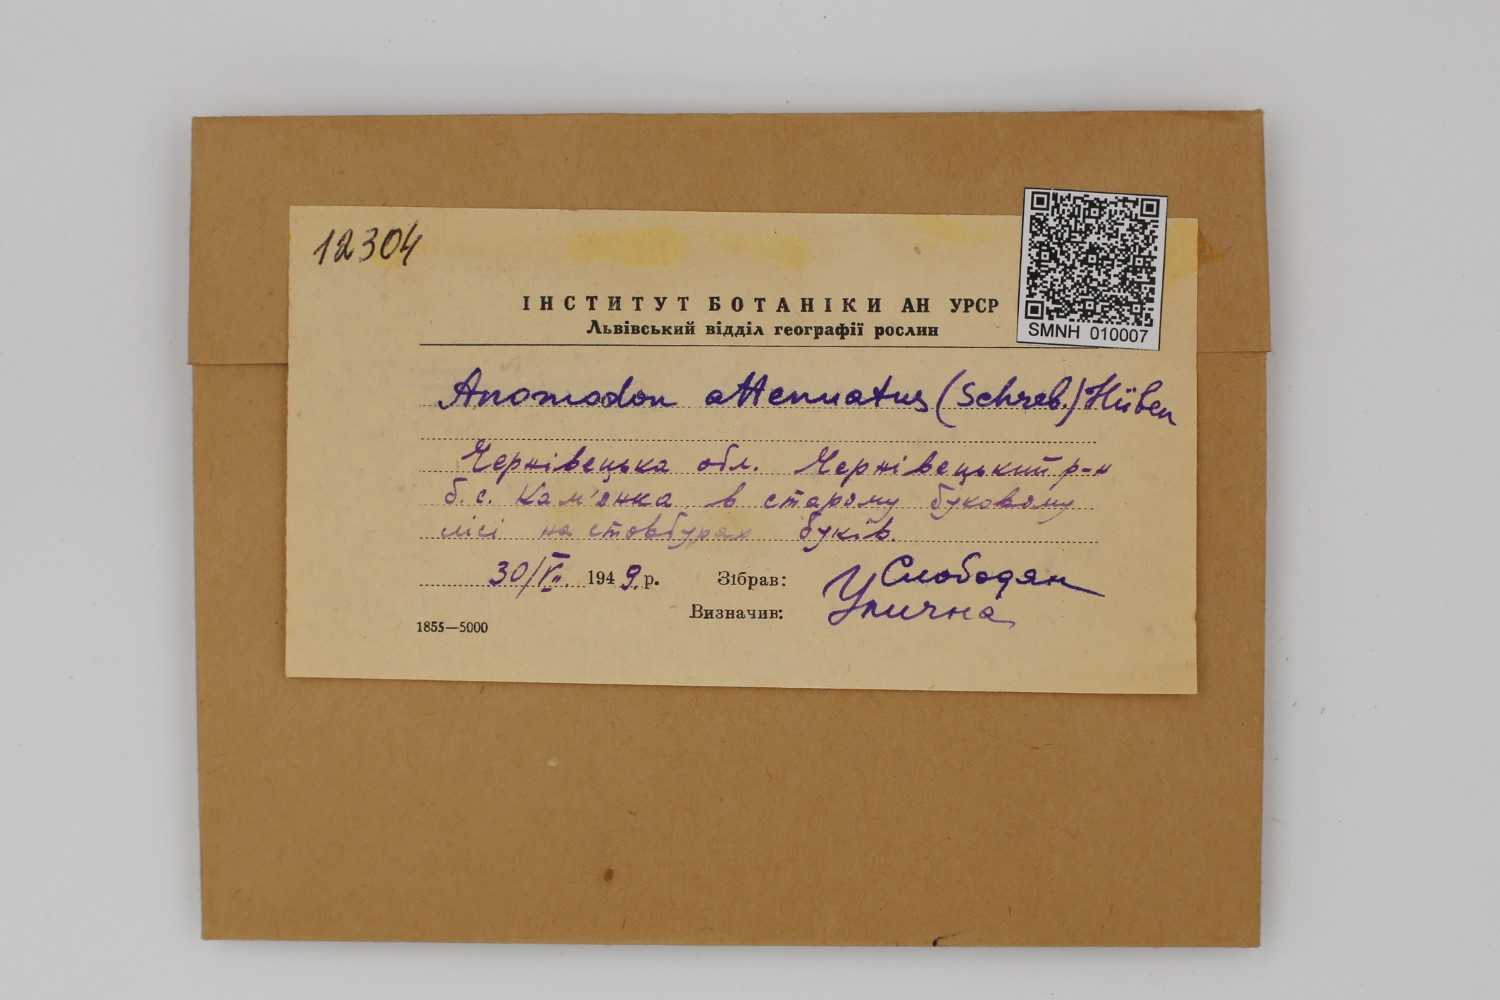 12304
ІНСТИТУТ БОТАНІКИ АН УРСР
Львівський відділ географії рослин
SMNH 010007
Anomodon attenuatus (Schreb.) Hüben
Чернівецька обл. Чернівецький р-н
б. с. Кам'янка, в старому буковому
лісі на стовбурах буків.
30/V. 1949.р. Зібрав: Слободян
Визначив: Улична
1855—5000